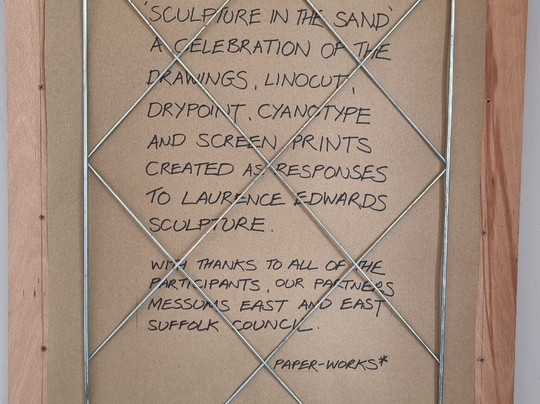 'SCULPTURE IN THE SAND'
A CELEBRATION OF THE
DRAWINGS, LINOCUT,
DRYPOINT, CYANOTYPE
AND SCREEN PRINTS
CREATED AS RESPONSES
TO LAURENCE EDWARDS
SCULPTURE.
WITH THANKS TO ALL OF THE
PARTICIPANTS, OUR PARTNERS
MESSUMS EAST AND EAST
SUFFOLK COUNCIL.
PAPER-WORKS*